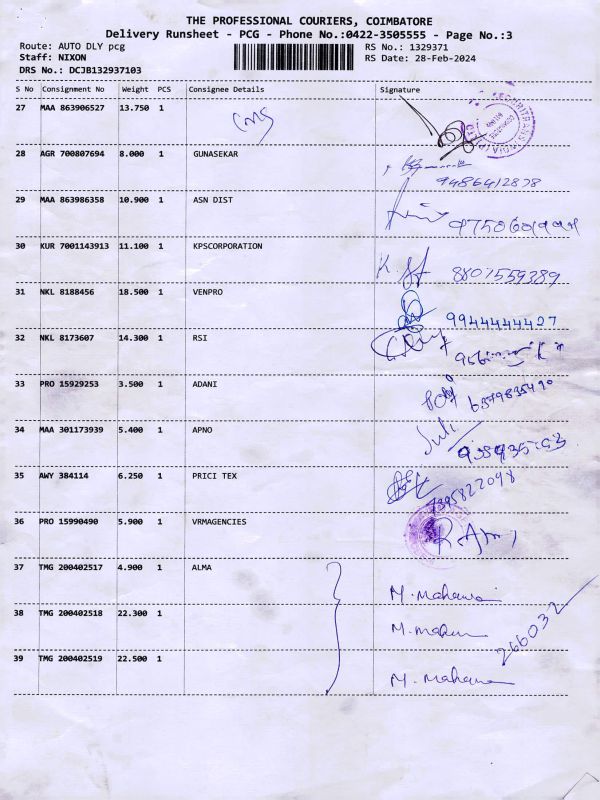 THE PROFESSIONAL COURIERS, COIMBATORE
Delivery Runsheet - PCG - Phone No.:0422-3505555 - Page No.:3
Route: AUTO DLY pcg RS No.: 1329371
Staff: NIXON RS Date: 28-Feb-2024
DRS No.: DCJB132937103
S No Consignment No Weight PCS Consignee Details Signature
27 MAA 863906527 13.750 1
28 AGR 700807694 8.000 1 GUNASEKAR
9486412878
29 MAA 863986358 10.900 1 ASN DIST
30 KUR 7001143913 11.100 1 KPSCORPORATION
8807559389
31 NKL 8188456 18.500 1 VENPRO
9944444427
32 NKL 8173607 14.300 1 RSI
33 PRO 15929253 3.500 1 ADANI
34 MAA 301173939 5.400 1 APNO
35 AWY 384114 6.250 1 PRICI TEX
7395822098
36 PRO 15990490 5.900 1 VRMAGENCIES
37 TMG 200402517 4.900 1 ALMA
38 TMG 200402518 22.300 1
266032
39 TMG 200402519 22.500 1